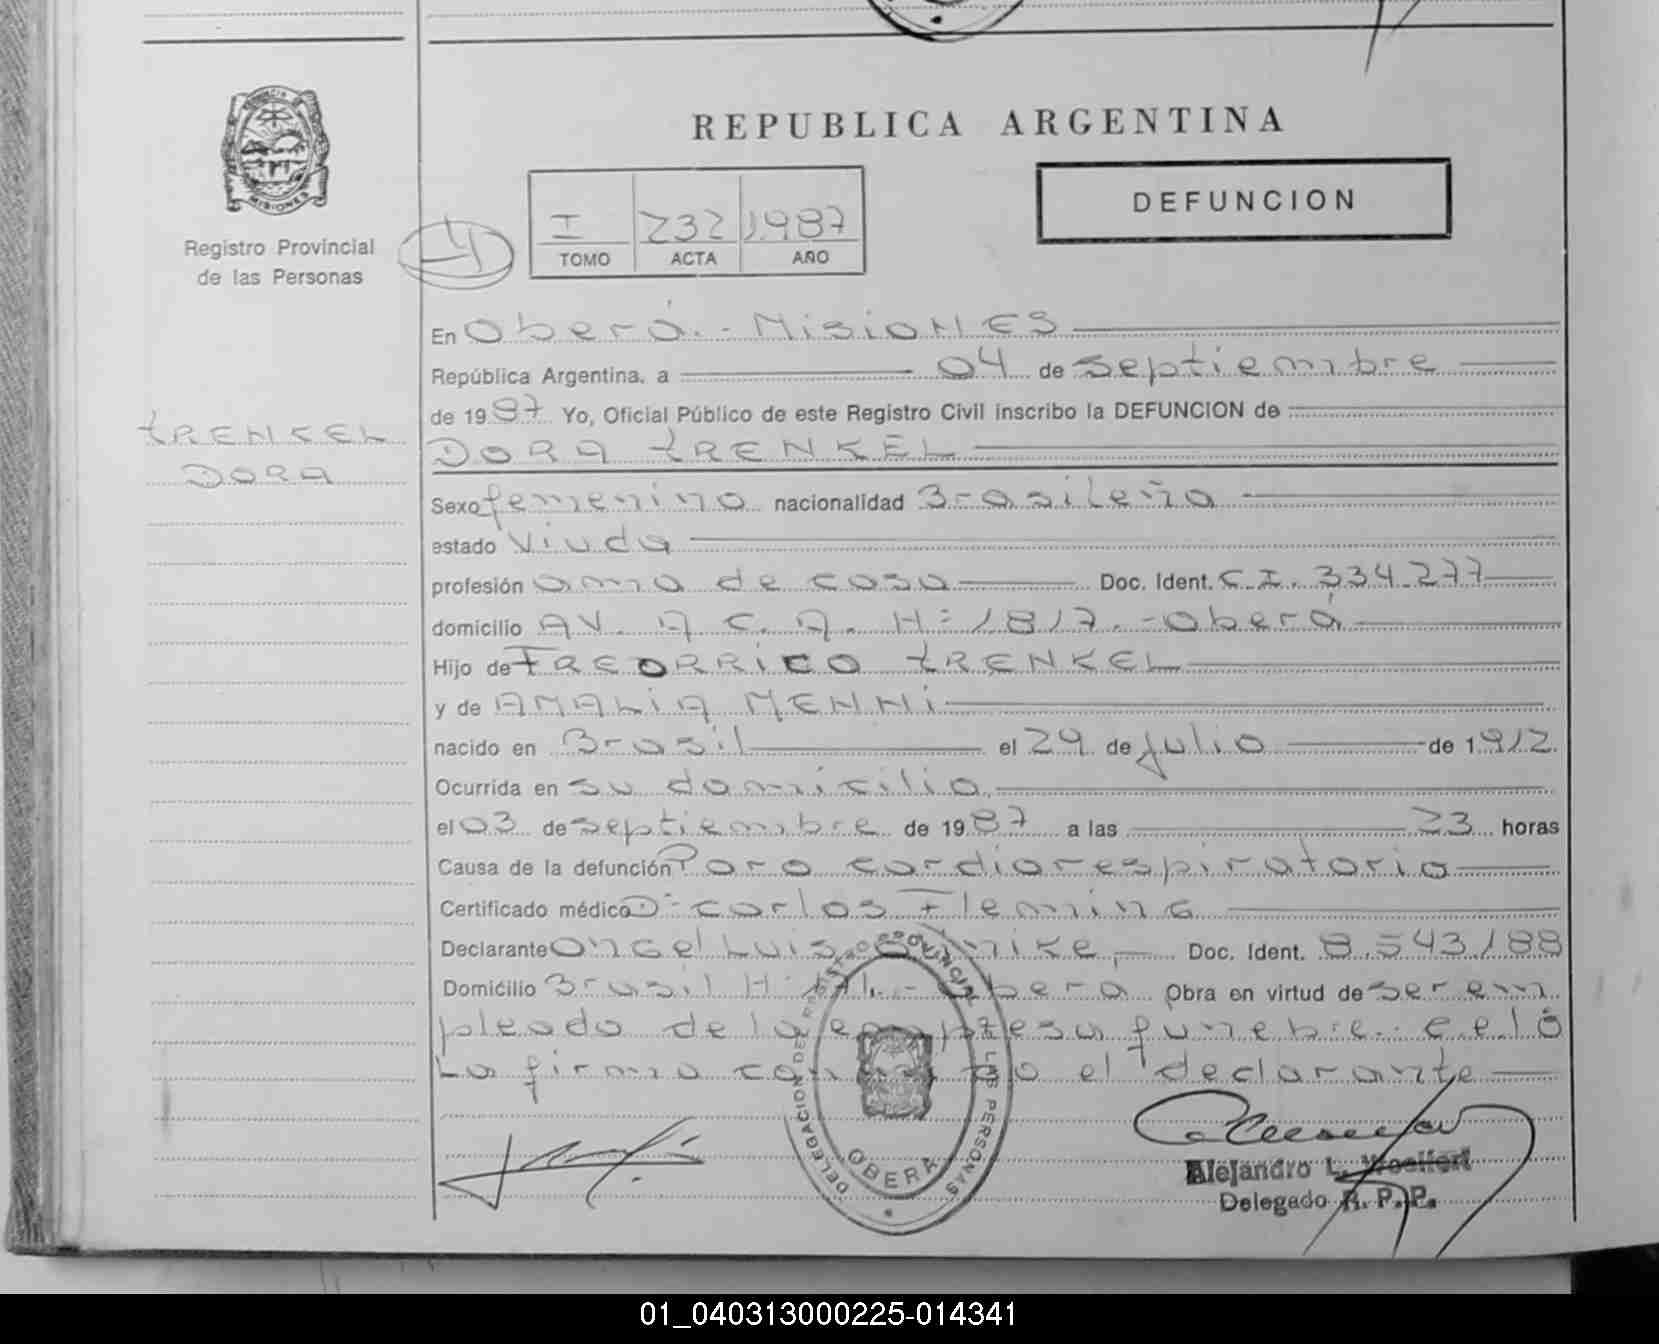 REPUBLICA ARGENTINA
DEFUNCION
PROVINCIA DE
MISIONES
Registro Provincial
de las Personas
4
I 232 1.987
TOMO ACTA AÑO
En Oberá.- Misiones
República Argentina, a 04 de septiembre
de 1987 Yo, Oficial Público de este Registro Civil inscribo la DEFUNCION de
tRENKEL
DORA
DORA tRENKEL
Sexo femenino nacionalidad Brasileña
estado Viuda
profesión ama de casa Doc. Ident. C.I. 334.277
domicilio AV. A.C.A. Nº 1817.-Oberá
Hijo de FREDRRiCO tRENKEL
y de AMALiA MENNi
nacido en Brasil el 29 de julio de 1912
Ocurrida en su domicilio
el 03 de septiembre de 1987 a las 23 horas
Causa de la defunción Paro cardiorespiratorio
Certificado médico Dr carlos Fleming
Declarante angel Luis Doc. Ident. 8.543188
Domicilio Brasil Oberá Obra en virtud de ser em
pleado de la empresa funebre. Leelo
La firma con el declarante
DELEGACION DEL REGISTRO PROVINCIAL DE LAS PERSONAS
OBERA
Alejandro L. Woelfert
Delegado R. P. P.
01_040313000225-014341